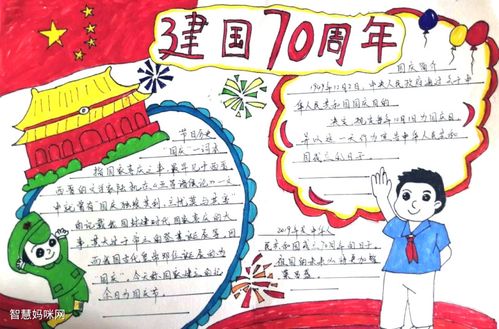 建国70周年
国庆简介
1949年12月2日，中央人民政府通过《中
华人民共和国国庆日的
决定》规定每年10月1日为国庆日，
并以这一天作为宣告中华人民共和
国成立的日子。
节日历史
"国庆"一词来
指国家喜庆之事，最早见于西晋。
西晋的文学家陆机在《五等诸侯论》一
文中记
我国封建时代国家喜庆的大
事，莫大过于帝王的登基、诞辰等。因
而我国古代
国庆"。今天称国家建立的纪
念日为国庆节。
2019年是中华人
民共和国成立70周年的日子。
祖国的未来必将更加繁
荣昌盛。
智慧妈咪网